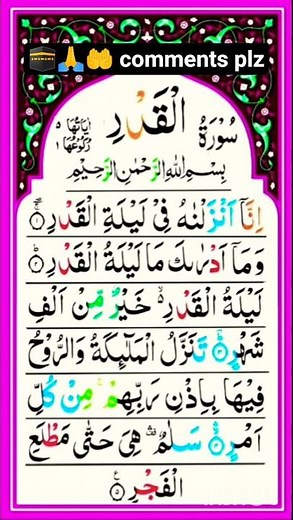 🕋🙏🤲 comments plz
سُوْرَةُ الْقَدْرِ اٰيَاتُهَا ٥ رُكُوْعُهَا ١
بِسْمِ اللّٰهِ الرَّحْمٰنِ الرَّحِيْمِ
اِنَّاۤ اَنْزَلْنٰهُ فِيْ لَيْلَةِ الْقَدْرِ ۝١
وَمَاۤ اَدْرٰىكَ مَا لَيْلَةُ الْقَدْرِ ۝٢
لَيْلَةُ الْقَدْرِ ۙ خَيْرٌ مِّنْ اَلْفِ
شَهْرٍ ۝٣ تَنَزَّلُ الْمَلٰٓئِكَةُ وَالرُّوْحُ
فِيْهَا بِاِذْنِ رَبِّهِمْ ۚ مِنْ كُلِّ
اَمْرٍ ۝٤ سَلٰمٌ ۛ هِيَ حَتّٰى مَطْلَعِ
الْفَجْرِ ۝٥